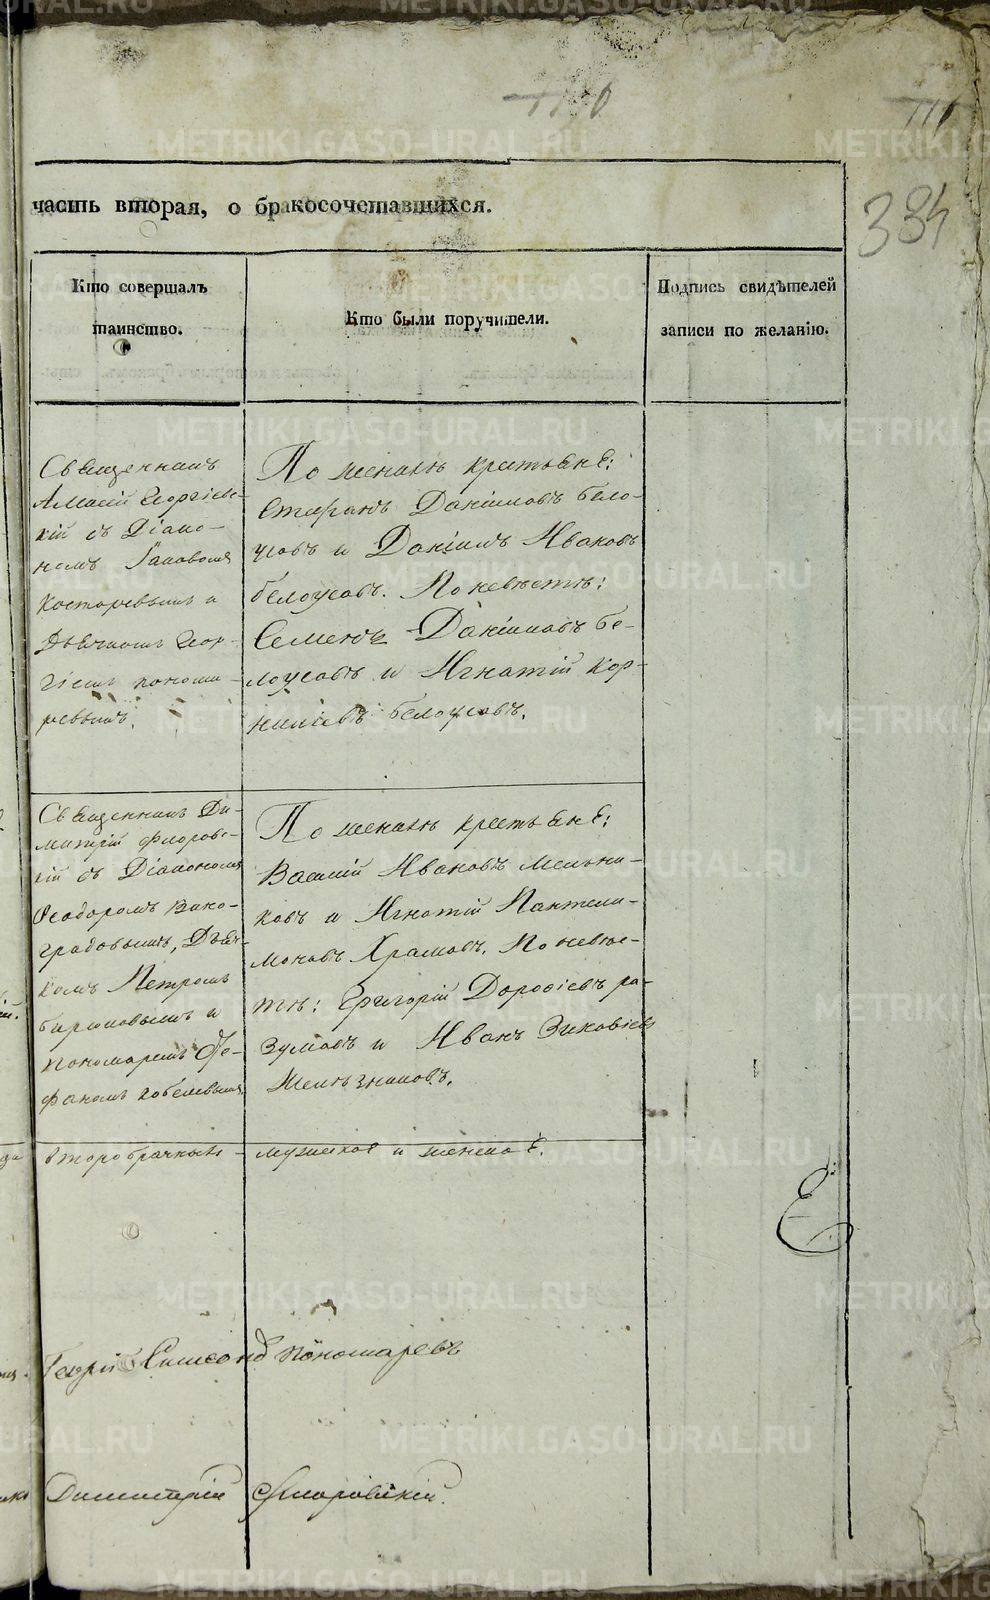 110
111
384
часть вторая, о бракосочетавшихся.
Кто совершалъ
таинство.
Кто были поручители.
Подпись свидѣтелей
записи по желанію.
Священникъ
Алексій Георгіевс-
кій съ Діако-
номъ Іаковомъ
Косторевымъ и
Дьячкомъ Геор-
гіемъ понома-
ревымъ.
По женихѣ крестьяне:
Стефанъ Даніиловъ бело-
усовъ и Даніилъ Ивановъ
белоусовъ. По невѣстѣ:
Семенъ Даніиловъ бе-
лоусовъ и Игнатій Кор-
ниліевъ белоусовъ.
Священникъ Ди-
митрій Флоровс-
кій съ Діакономъ
Ѳеодоромъ Вино-
градовымъ, Дьяч-
комъ Петромъ
бирюковымъ и
пономаремъ Сте-
фаномъ кобелевымъ
По женихѣ крестьяне:
Василій Ивановъ Мельни-
ковъ и Игнатій Пантели-
моновъ Храмовъ. По невѣс-
тѣ: Григорій Дороѳіевъ ра-
зумовъ и Иванъ Зиновіевъ
Желѣзниковъ.
второбрачныхъ - мужеска и женска
Георгій Симеоновъ пономаревъ
Димитрій Флоровскій.
METRIKI.GASO-URAL.RU